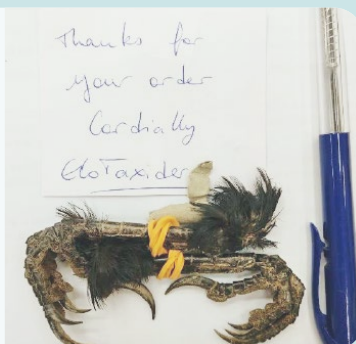 Thanks for
your order
Cordially
EtoTaxider